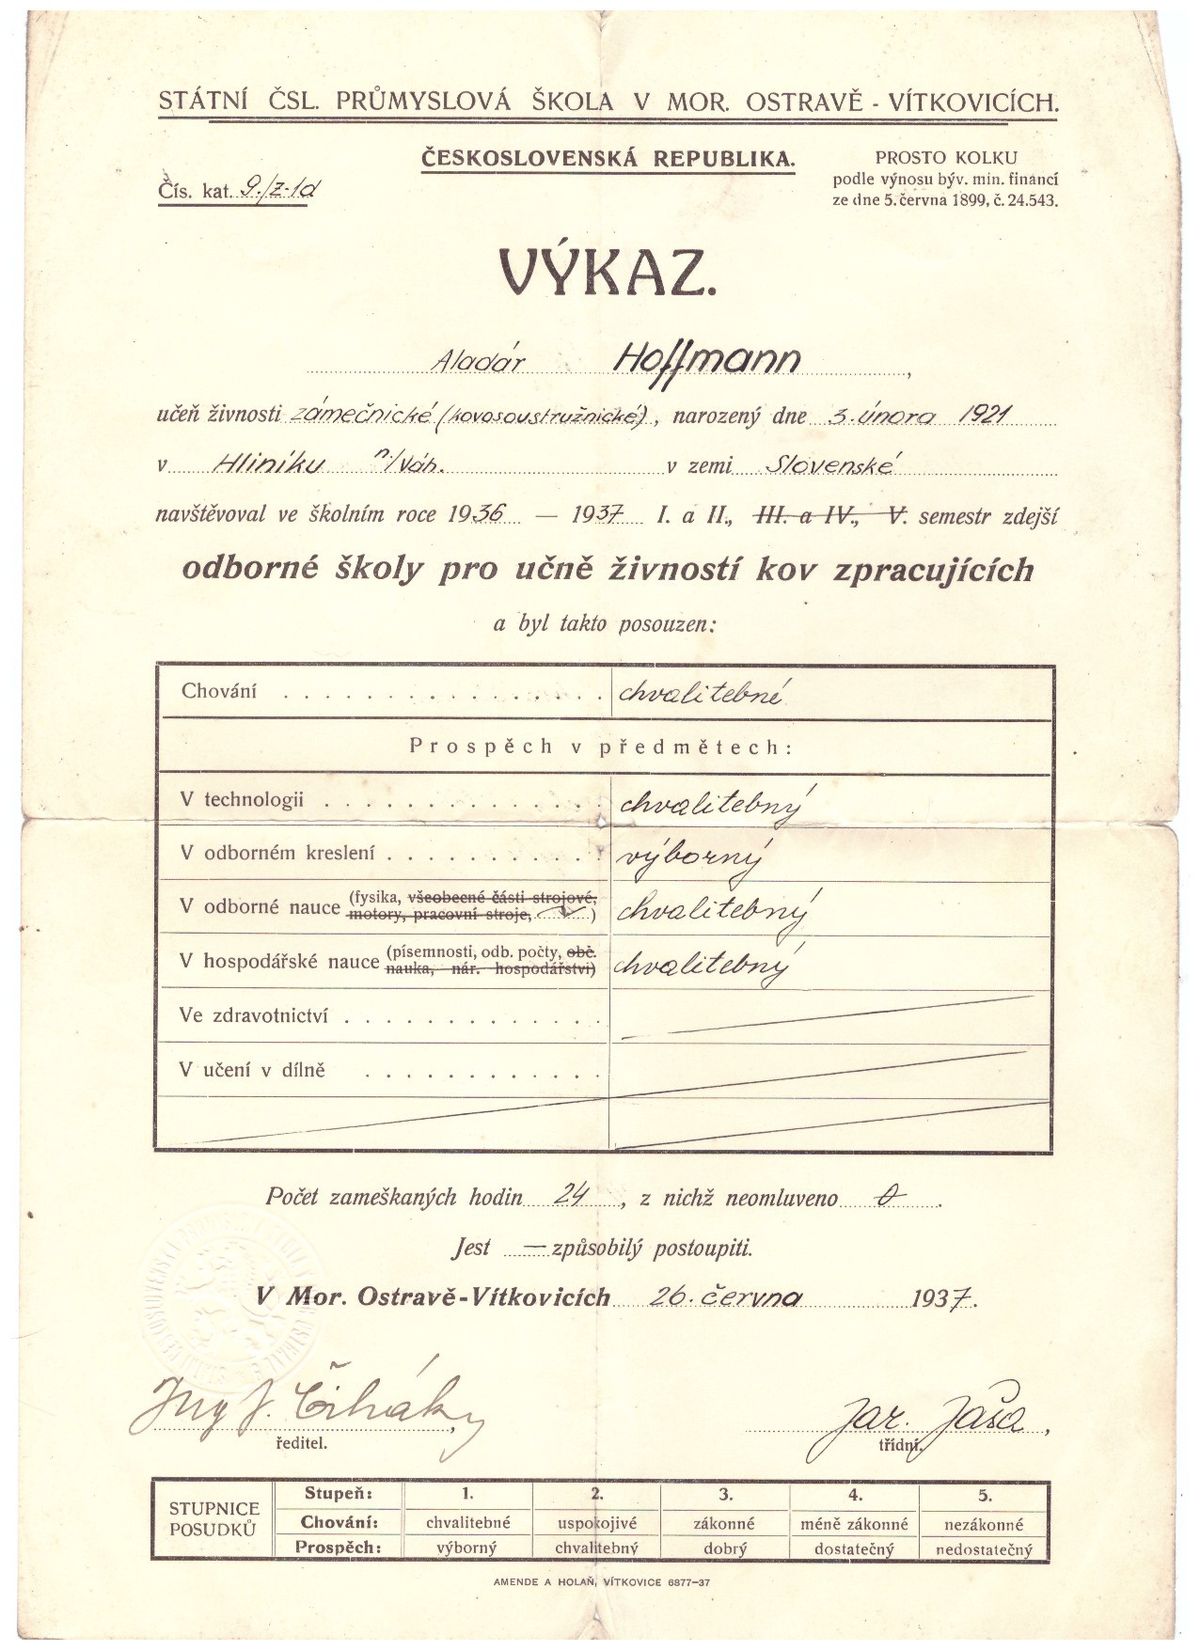 STÁTNÍ ČSL. PRŮMYSLOVÁ ŠKOLA V MOR. OSTRAVĚ - VÍTKOVICÍCH.
ČESKOSLOVENSKÁ REPUBLIKA.
Čís. kat. 9./z-1d
PROSTO KOLKU
podle výnosu býv. min. financí
ze dne 5. června 1899, č. 24.543.
VÝKAZ.
Aladár Hoffmann,
učeň živnosti zámečnické (kovosoustružnické), narozený dne 3. února 1921
v Hliníku n./Váh. v zemi Slovenské
navštěvoval ve školním roce 1936 — 1937 I. a II., III. a IV., V. semestr zdejší
odborné školy pro učně živností kov zpracujících
a byl takto posouzen:
Chování chvalitebné
Prospěch v předmětech:
V technologii chvalitebný
V odborném kreslení výborný
V odborné nauce (fysika, všeobecné části strojové, motory, pracovní stroje, ) chvalitebný
V hospodářské nauce (písemnosti, odb. počty, obč. nauka, nár. hospodářství) chvalitebný
Ve zdravotnictví
V učení v dílně
Počet zameškaných hodin 24, z nichž neomluveno 0.
Jest — způsobilý postoupiti.
V Mor. Ostravě-Vítkovicích 26. června 1937.
Ing J. Čihák,
ředitel.
Jar. Jáša,
třídní.
STUPNICE POSUDKŮ
Stupeň: 1. 2. 3. 4. 5.
Chování: chvalitebné uspokojivé zákonné méně zákonné nezákonné
Prospěch: výborný chvalitebný dobrý dostatečný nedostatečný
AMENDE A HOLAŇ, VÍTKOVICE 6877-37